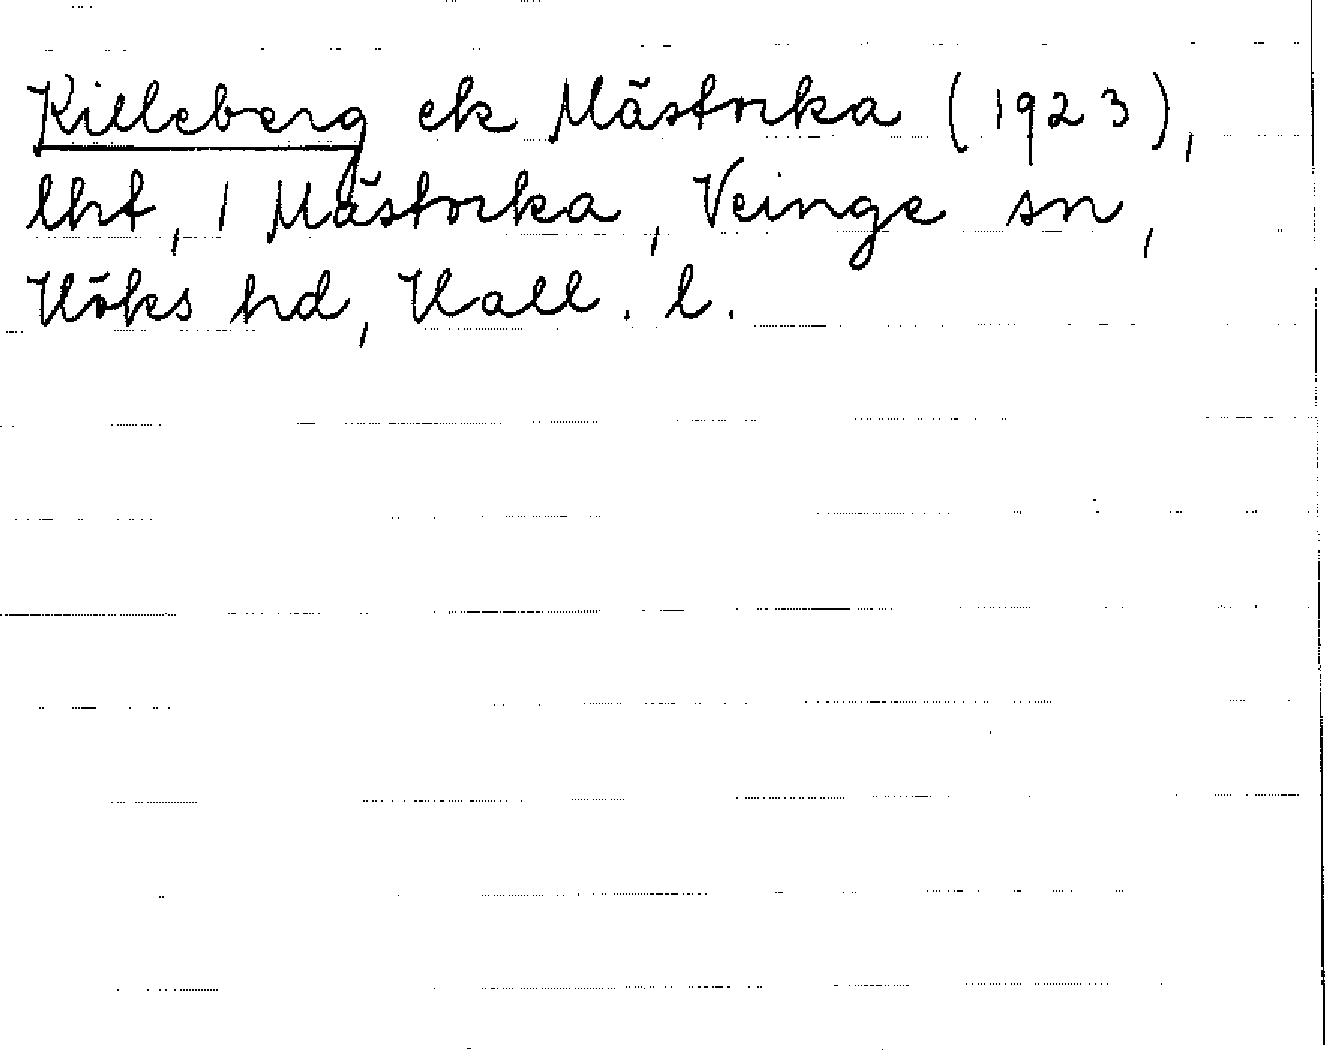 Killeberg ek Mästocka (1923),
lht, 1 Mästocka, Veinge sn,
Höks hd, Hall. l.